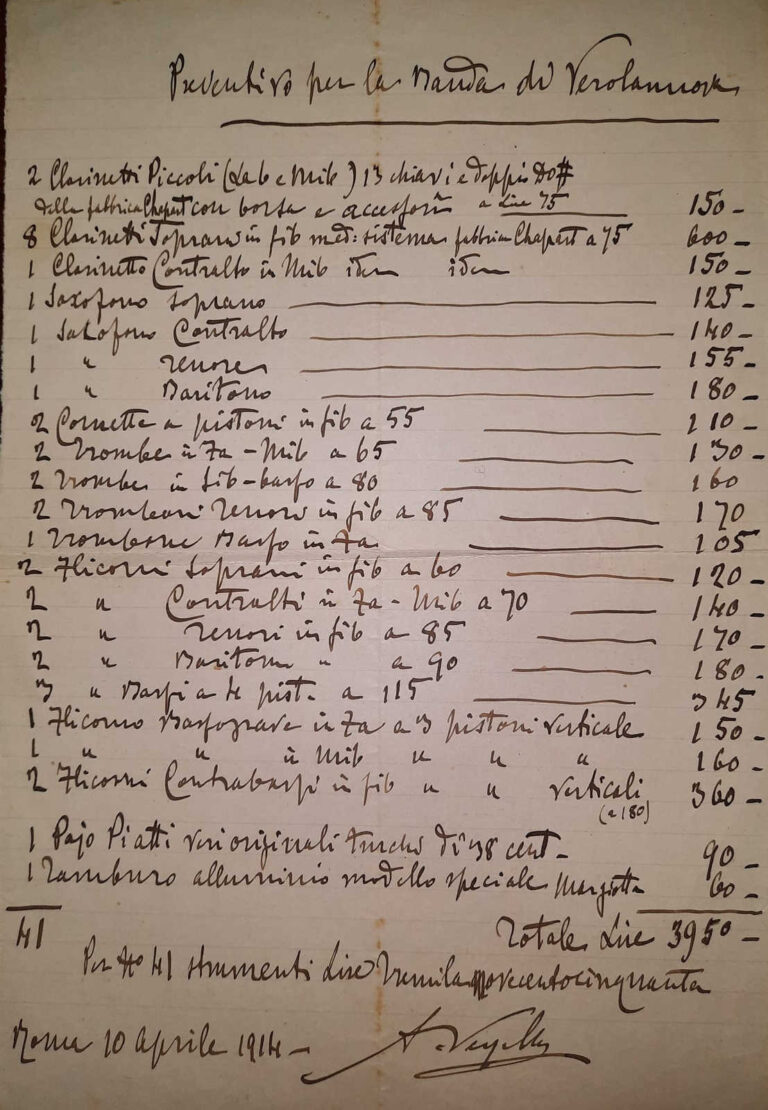 Preventivo per la Banda di Verolanuova
2 Clarinetti Piccoli (Lab e Mib) 13 chiavi e doppio Do#
della fabbrica Chapart con borsa e accessori a Lire 75 150 -
8 Clarinetti Soprani in Sib med: sistema fabbrica Chapart a 75 600 -
1 Clarinetto Contralto in Mib idem idem 150 -
1 Saxofono Soprano 125 -
1 Saxofono Contralto 140 -
1 " Tenore 155 -
1 " Baritono 180 -
2 Cornette a pistoni in Sib a 55 110 -
2 Trombe in Fa - Mib a 65 130 -
2 Trombe in Sib-basso a 80 160
2 Tromboni Tenori in Sib a 85 170
1 Trombone Basso in Fa 105
2 Flicorni Soprani in Sib a 60 120 -
2 " Contralti in Fa - Mib a 70 140 -
2 " Tenori in Sib a 85 170 -
2 " Baritoni " a 90 180 -
3 " Bassi a 4 pist. a 115 345
1 Flicorno Bassograve in Fa a 3 pistoni verticale 150 -
1 " " in Mib " " " 160 -
2 Flicorni Contrabassi in Sib " " verticali 360 -
(a 180)
1 Pajo Piatti veri originali turchi di 38 cent - 90 -
1 Tamburo alluminio modello speciale 60 -
41 Totale Lire 3950 -
Per No 41 strumenti Lire Tremilanovecentocinquanta
Roma 10 Aprile 1914 -